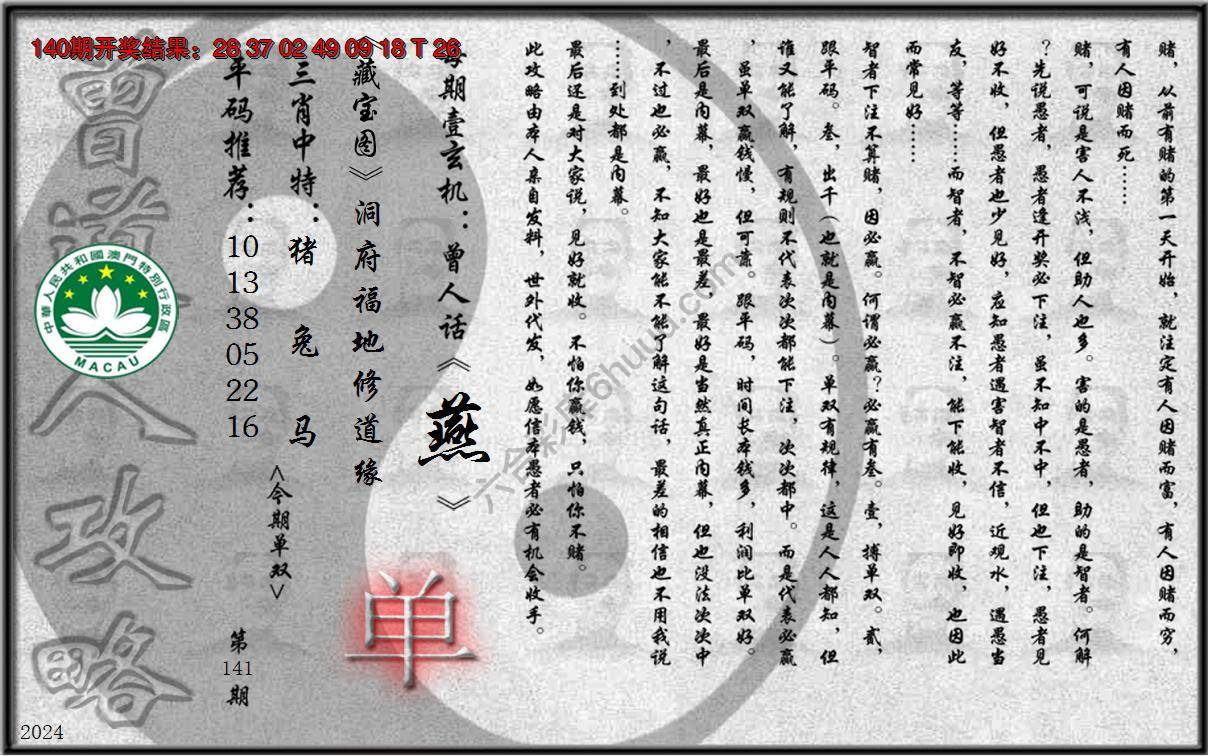 140期开奖结果：28 37 02 49 09 18 T 26
赌，从前有赌的第一天开始，就注定有人因赌而富，有人因赌而穷，
有人因赌而死……
赌，可说是害人不浅，但助人也多。害的是愚者，助的是智者。何解
？先说愚者，愚者逢开奖必下注，虽不知中不中，但也下注，愚者见
好不收，但愚者也少见好，应知愚者遇害智者不信，近观水，遇愚当
友，等等……而智者，不智必赢不注，能下能收，见好即收，也因此
而常见好……
智者下注不算赌，因必赢。何谓必赢？必赢有叁。壹，搏单双。贰，
跟平码。叁，出千（也就是内幕）。单双有规律，这是人人都知，但
谁又能了解，有规则不代表次次都能下注，次次都中。而是代表必赢
，虽单双赢钱慢，但可靠。跟平码，时间长本钱多，利润比单双好。
最后是内幕，最好也是最差，最好是当然真正内幕，但也没法次次中
，不过也必赢，不知大家能不能了解这句话，最差的相信也不用我说
……到处都是内幕。
最后还是对大家说，见好就收。不怕你赢钱，只怕你不赌。
此攻略由本人亲自发料，世外代发，如愿信本愚者必有机会收手。
每期壹玄机：曾人话《燕》
《藏宝图》洞府福地修道缘
三肖中特：猪 兔 马
<今期单双>
单
平码推荐：
10
13
38
05
22
16
第
141
期
曾道人攻略
中華人民共和國澳門特別行政區
MACAU
六合彩库6huuu.com
2024